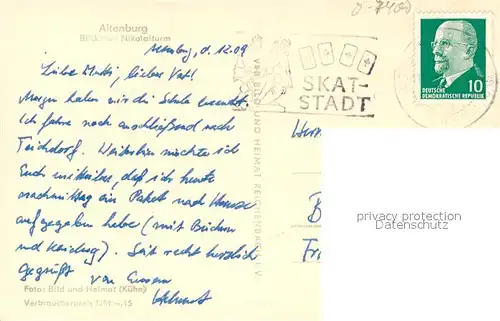 Altenburg
Blick zum Nikolaiturm
Altenburg, d. 12.09
Liebe Mutti, lieber Vati!
Morgen haben wir die Schule beendet.
Ich fahre noch anschließend nach
Weiterhin möchte ich
Euch mitteilen, daß ich heute
nachmittag ein Paket nach Hause
aufgegeben habe (mit Büchern
und Kleidung). Seid recht herzlich
gegrüßt von Eurem
Helmut
Foto: Bild und Heimat (Kühn)
Verbraucherpreis DM -,15
VEB BILD UND HEIMAT REICHENBACH I. V.
SKAT-
STADT
10
DEUTSCHE
DEMOKRATISCHE REPUBLIK
Herrn
B
Fr
privacy protection
Datenschutz